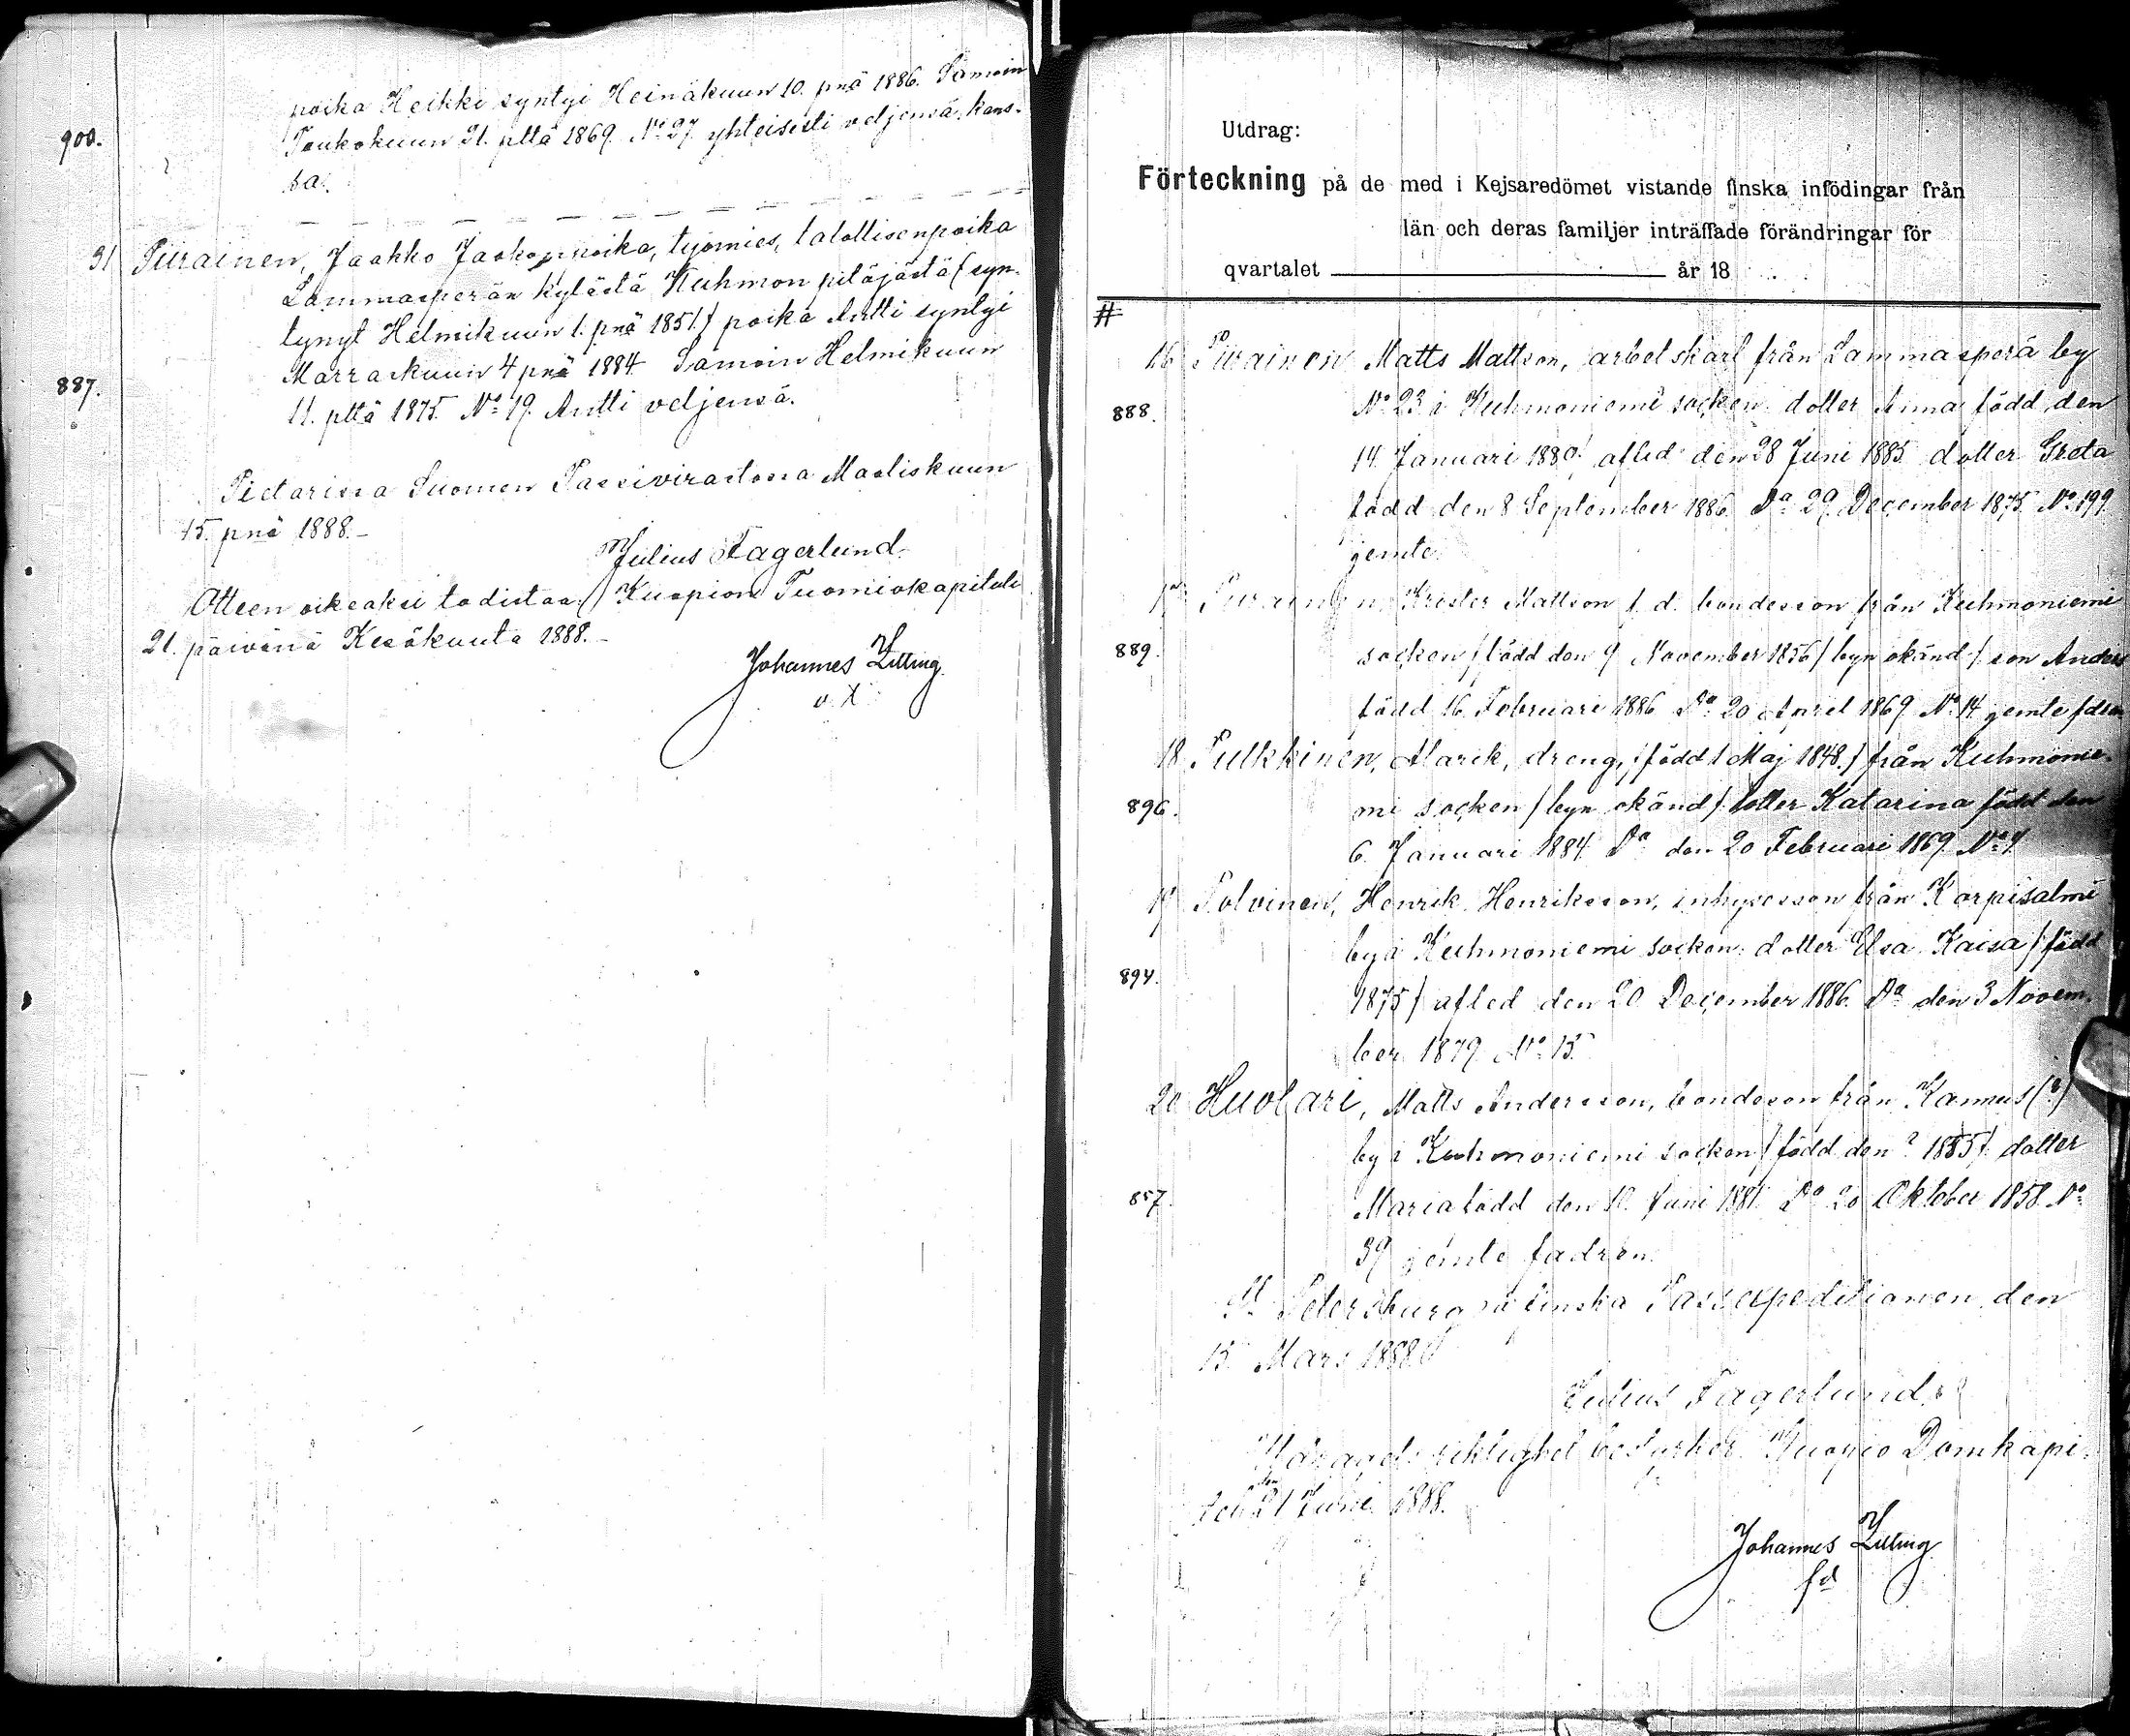 poika Heikki syntyi Heinäkuun 10. pnä 1886. Samoin
900.
Toukokuun 21. pltä 1869. No 27 yhteisesti veljensä kans-
sa.
31 Piirainen, Jaakko Jaakonpoika, työmies, talollisenpoika
Lammasperän kylästä Kuhmon pitäjästä (syn-
tynyt Helmikuun 1. pnä 1851.) poika Antti syntyi
Marraskuun 4 pnä 1884. Samoin Helmikuun
887.
11. pltä 1875. No 19. Antti veljensä.
Pietarissa Suomen Passivirastossa Maaliskuun
15. pnä 1888.-
Julius Fagerlund.
Otteen oikeaksi todistaa Kuopion Tuomiokapituli
21. päivänä Kesäkuuta 1888.-
Johannes Zitting
v. t.
Utdrag:
Förteckning på de med i Kejsaredömet vistande finska infödingar från
län och deras familjer inträffade förändringar för
qvartalet år 18
#
16 Piirainen Matts Mattson, arbetskarl från Lammasperä by
888.
No 23 i Kuhmoniemi socken. dotter Anna född den
14 Januari 1880 afled den 28 Juni 1885 dotter Greta
född den 8 September 1886. Da 29 December 1875 No 199
jemte
17 Piirainen, Krister Mattson f. d. bondesson från Kuhmoniemi
889.
socken /född den 9 November 1856/ byn okänd/ son Anders
född 16 Februari 1886 Da 20 April 1869 No 14 jemte fdrn
18 Pulkkinen, Marik, dreng, /född 1 Maj 1848./ från Kuhmonie-
896.
mi socken /byn okänd/ dotter Katarina född den
6. Januari 1884 Da den 20 Februari 1869 No 7
19 Polvinen, Henrik Henriksson, inhysesson från Korpisalmi
by i Kuhmoniemi socken: dotter Elsa Kaisa /född
894.
1875/ afled den 20 December 1886. Da den 3 Novem-
ber 1879 No 15.
20 Huotari, Matts Andersson, bondeson från Kannus (?)
by i Kuhmoniemi socken /född den ? 1855/ dotter
857.
Maria född den 10. Juni 1881 Da 20 Oktober 1858 No
39 jemte fadren.
St Petersburg å finska Passexpeditionen den
15 Mars 1888.
Julius Fagerlund.
Utdragets riktighet bestyrker. Kuopio Domkapi-
tel den 21 Juni 1888.
Johannes Zitting
fd